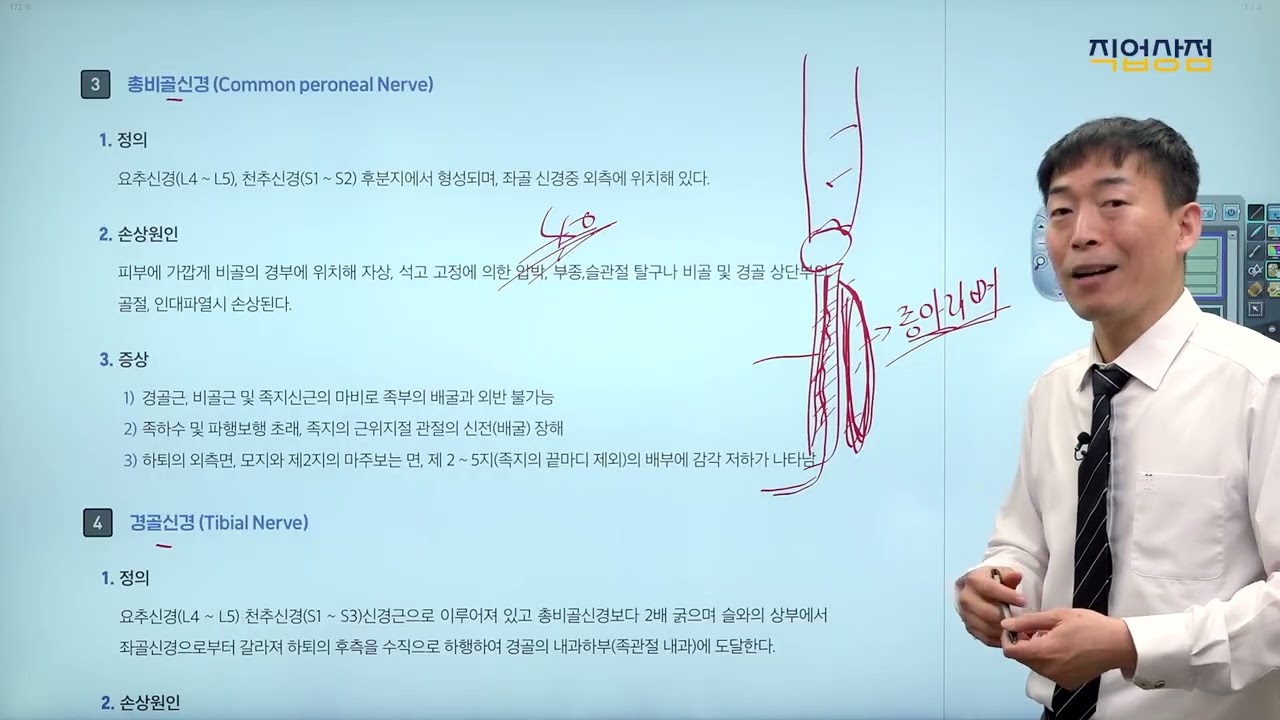 172 %
1 / 2
직업상점
3 총비골신경 (Common peroneal Nerve)
1. 정의
요추신경(L4 ~ L5), 천추신경(S1 ~ S2) 후분지에서 형성되며, 좌골 신경중 외측에 위치해 있다.
2. 손상원인
피부에 가깝게 비골의 경부에 위치해 자상, 석고 고정에 의한 압박, 부종,슬관절 탈구나 비골 및 경골 상단부의
골절, 인대파열시 손상된다.
종아리뼈
3. 증상
1) 경골근, 비골근 및 족지신근의 마비로 족부의 배굴과 외반 불가능
2) 족하수 및 파행보행 초래, 족지의 근위지절 관절의 신전(배굴) 장해
3) 하퇴의 외측면, 모지와 제2지의 마주보는 면, 제 2 ~ 5지(족지의 끝마디 제외)의 배부에 감각 저하가 나타남
4 경골신경 (Tibial Nerve)
1. 정의
요추신경(L4 ~ L5) 천추신경(S1 ~ S3)신경근으로 이루어져 있고 총비골신경보다 2배 굵으며 슬와의 상부에서
좌골신경으로부터 갈라져 하퇴의 후측을 수직으로 하행하여 경골의 내과하부(족관절 내과)에 도달한다.
2. 손상원인